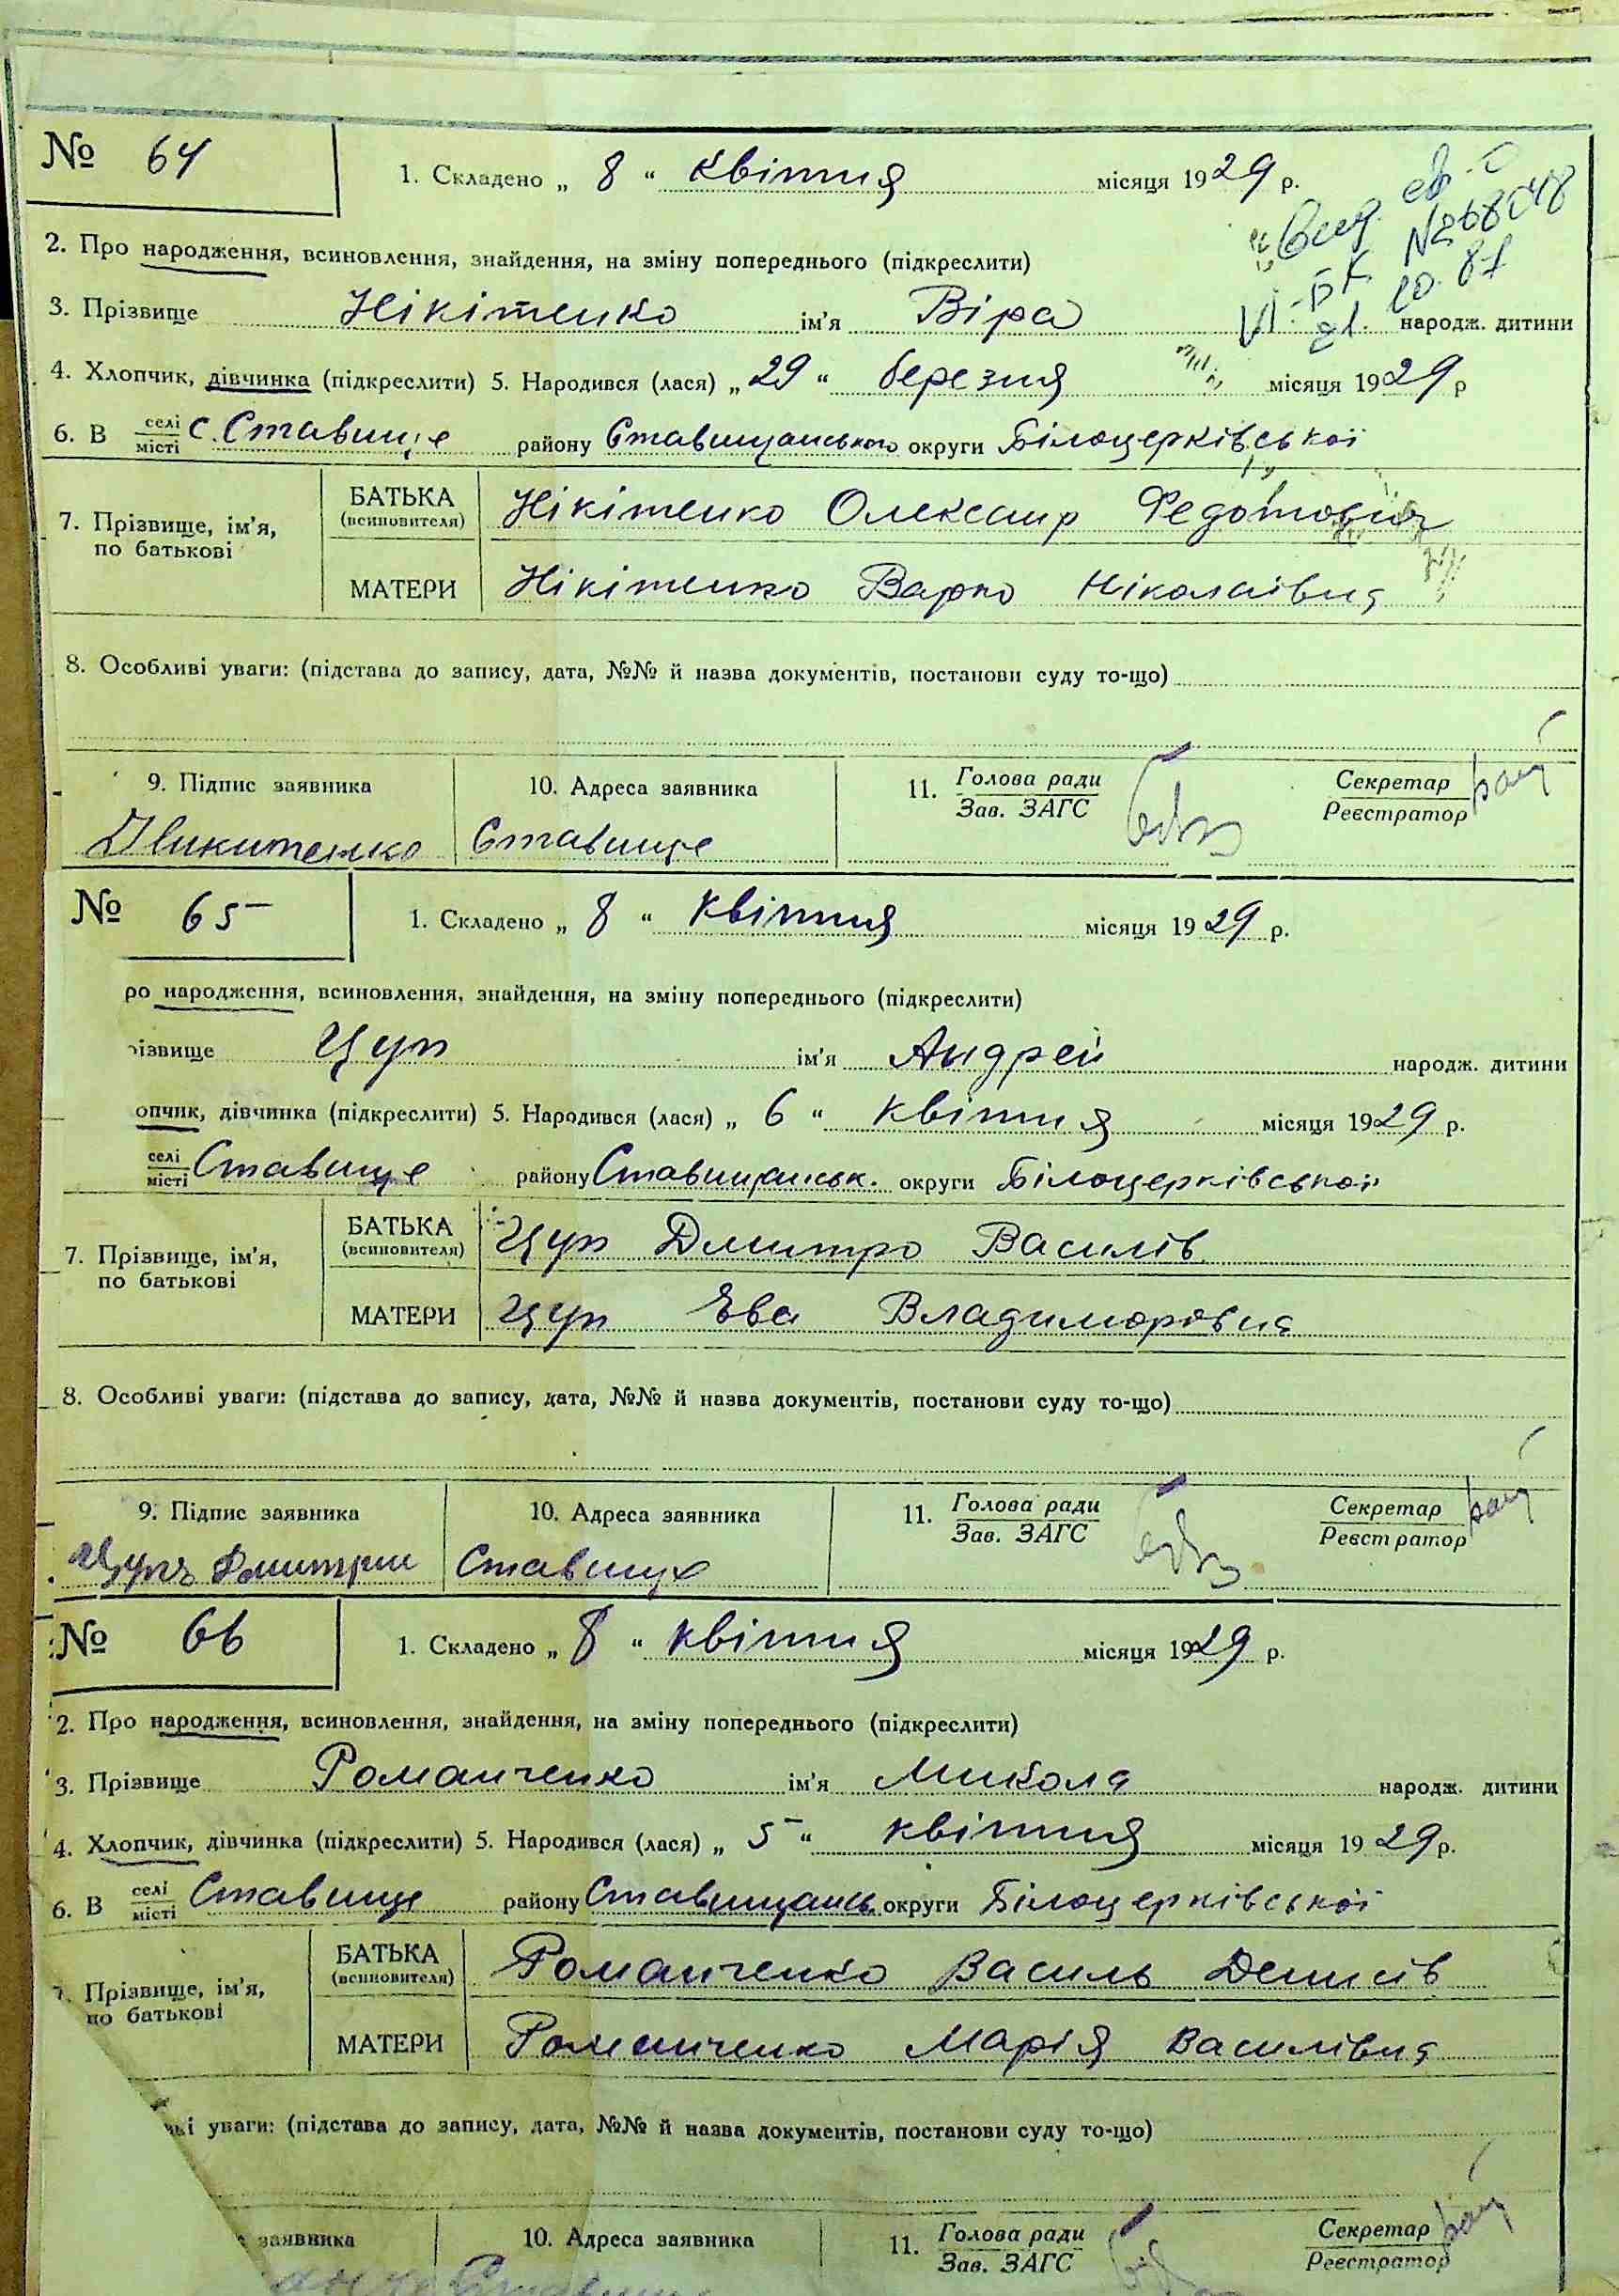 № 64
1. Складено „ 8 “ Квітня місяця 1929 р.
2. Про народження, всиновлення, знайдення, на зміну попереднього (підкреслити)
3. Прізвище Нікітенко ім'я Віра народж. дитини
4. Хлопчик, дівчинка (підкреслити) 5. Народився (лася) „ 29 “ березня місяця 1929 р
6. В селі місті с. Ставище району Ставищанського округи Білоцерківської
7. Прізвище, ім'я, по батькові
БАТЬКА (всиновителя) Нікітенко Олександр Федотович
МАТЕРИ Нікітенко Варка Ніколаівна
8. Особливі уваги: (підстава до запису, дата, №№ й назва документів, постанови суду то-що)
9. Підпис заявника 10. Адреса заявника 11. Голова ради Зав. ЗАГС Секретар Реєстратор
Никитенко Ставище
№ 65
1. Складено „ 8 “ Квітня місяця 1929 р.
ро народження, всиновлення, знайдення, на зміну попереднього (підкреслити)
різвище Цуп ім'я Андрей народж. дитини
опчик, дівчинка (підкреслити) 5. Народився (лася) „ 6 “ Квітня місяця 1929 р.
селі місті Ставище району Ставищанськ. округи Білоцерківської
7. Прізвище, ім'я, по батькові
БАТЬКА (всиновителя) Цуп Дмитро Василів
МАТЕРИ Цуп Ева Владиморовна
8. Особливі уваги: (підстава до запису, дата, №№ й назва документів, постанови суду то-що)
9. Підпис заявника 10. Адреса заявника 11. Голова ради Зав. ЗАГС Секретар Реєстратор
Цупъ Дмитри Ставище
№ 66
1. Складено „ 8 “ квітня місяця 1929 р.
2. Про народження, всиновлення, знайдення, на зміну попереднього (підкреслити)
3. Прізвище Романченко ім'я Микола народж. дитини
4. Хлопчик, дівчинка (підкреслити) 5. Народився (лася) „ 5 “ квітня місяця 1929 р.
6. В селі місті Ставище району Ставищансь. округи Білоцерківської
7. Прізвище, ім'я, по батькові
БАТЬКА (всиновителя) Романченко Василь Денисів
МАТЕРИ Романченко Марія Василівна
уваги: (підстава до запису, дата, №№ й назва документів, постанови суду то-що)
заявника 10. Адреса заявника 11. Голова ради Зав. ЗАГС Секретар Реєстратор